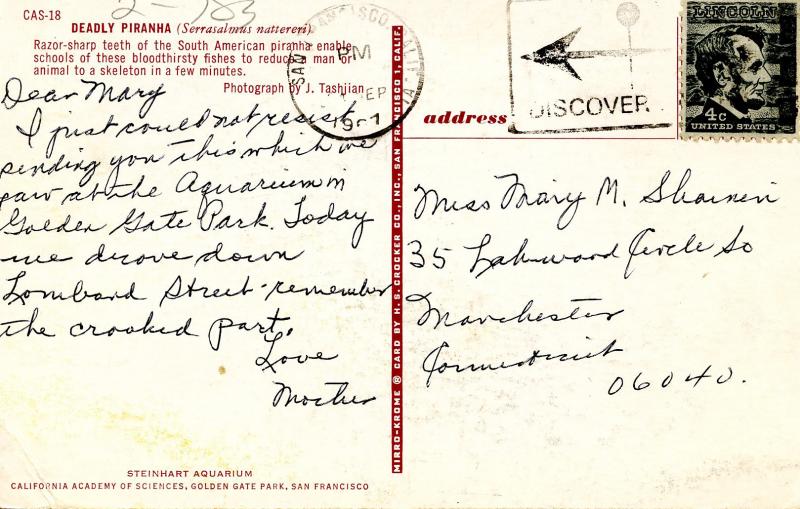 CAS-18
DEADLY PIRANHA (Serrasalmus nattereri)
Razor-sharp teeth of the South American piranha enable
schools of these bloodthirsty fishes to reduce a man or
animal to a skeleton in a few minutes.
Photograph by J. Tashjian
Dear Mary
I just could not resist
sending you this which we
saw at the Aquarium in
Golden Gate Park. Today
we drove down
Lombard Street - remember
the crooked part.
Love
Mother
STEINHART AQUARIUM
CALIFORNIA ACADEMY OF SCIENCES, GOLDEN GATE PARK, SAN FRANCISCO
MIRRO-KROME ® CARD BY H. S. CROCKER CO., INC., SAN FRANCISCO 1, CALIF.
SAN FRANCISCO CALIF
PM
SEP
DISCOVER
LINCOLN
4c
UNITED STATES
address
Miss Mary M.
35 Lakewood Circle So
Manchester
Connecticut
06040.